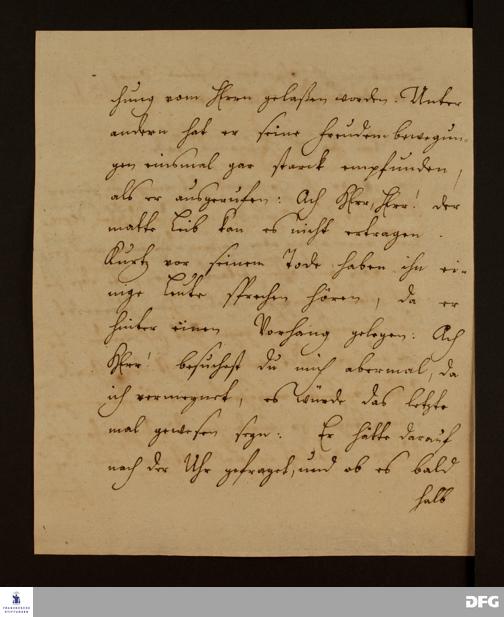 chung vom HErrn gelaßen worden. Unter
andern hat er seine freudenbewegun-
gen einsmal gar starck empfunden,
als er ausgeruffen: Ach HErr, HErr! der
matte Leib kan es nicht ertragen.
Kurtz vor seinem Tode haben ihn ei-
nige Leute sprechen hören, da er
hinter einen Vorhang gelegen: Ach
HErr! besuchest du mich abermal, da
ich vermeynet, es würde das letzte
mal gewesen seyn: Er hätte darauf
nach der Uhr gefraget, und ob es bald
halb
FRANCKESCHE
STIFTUNGEN
DFG